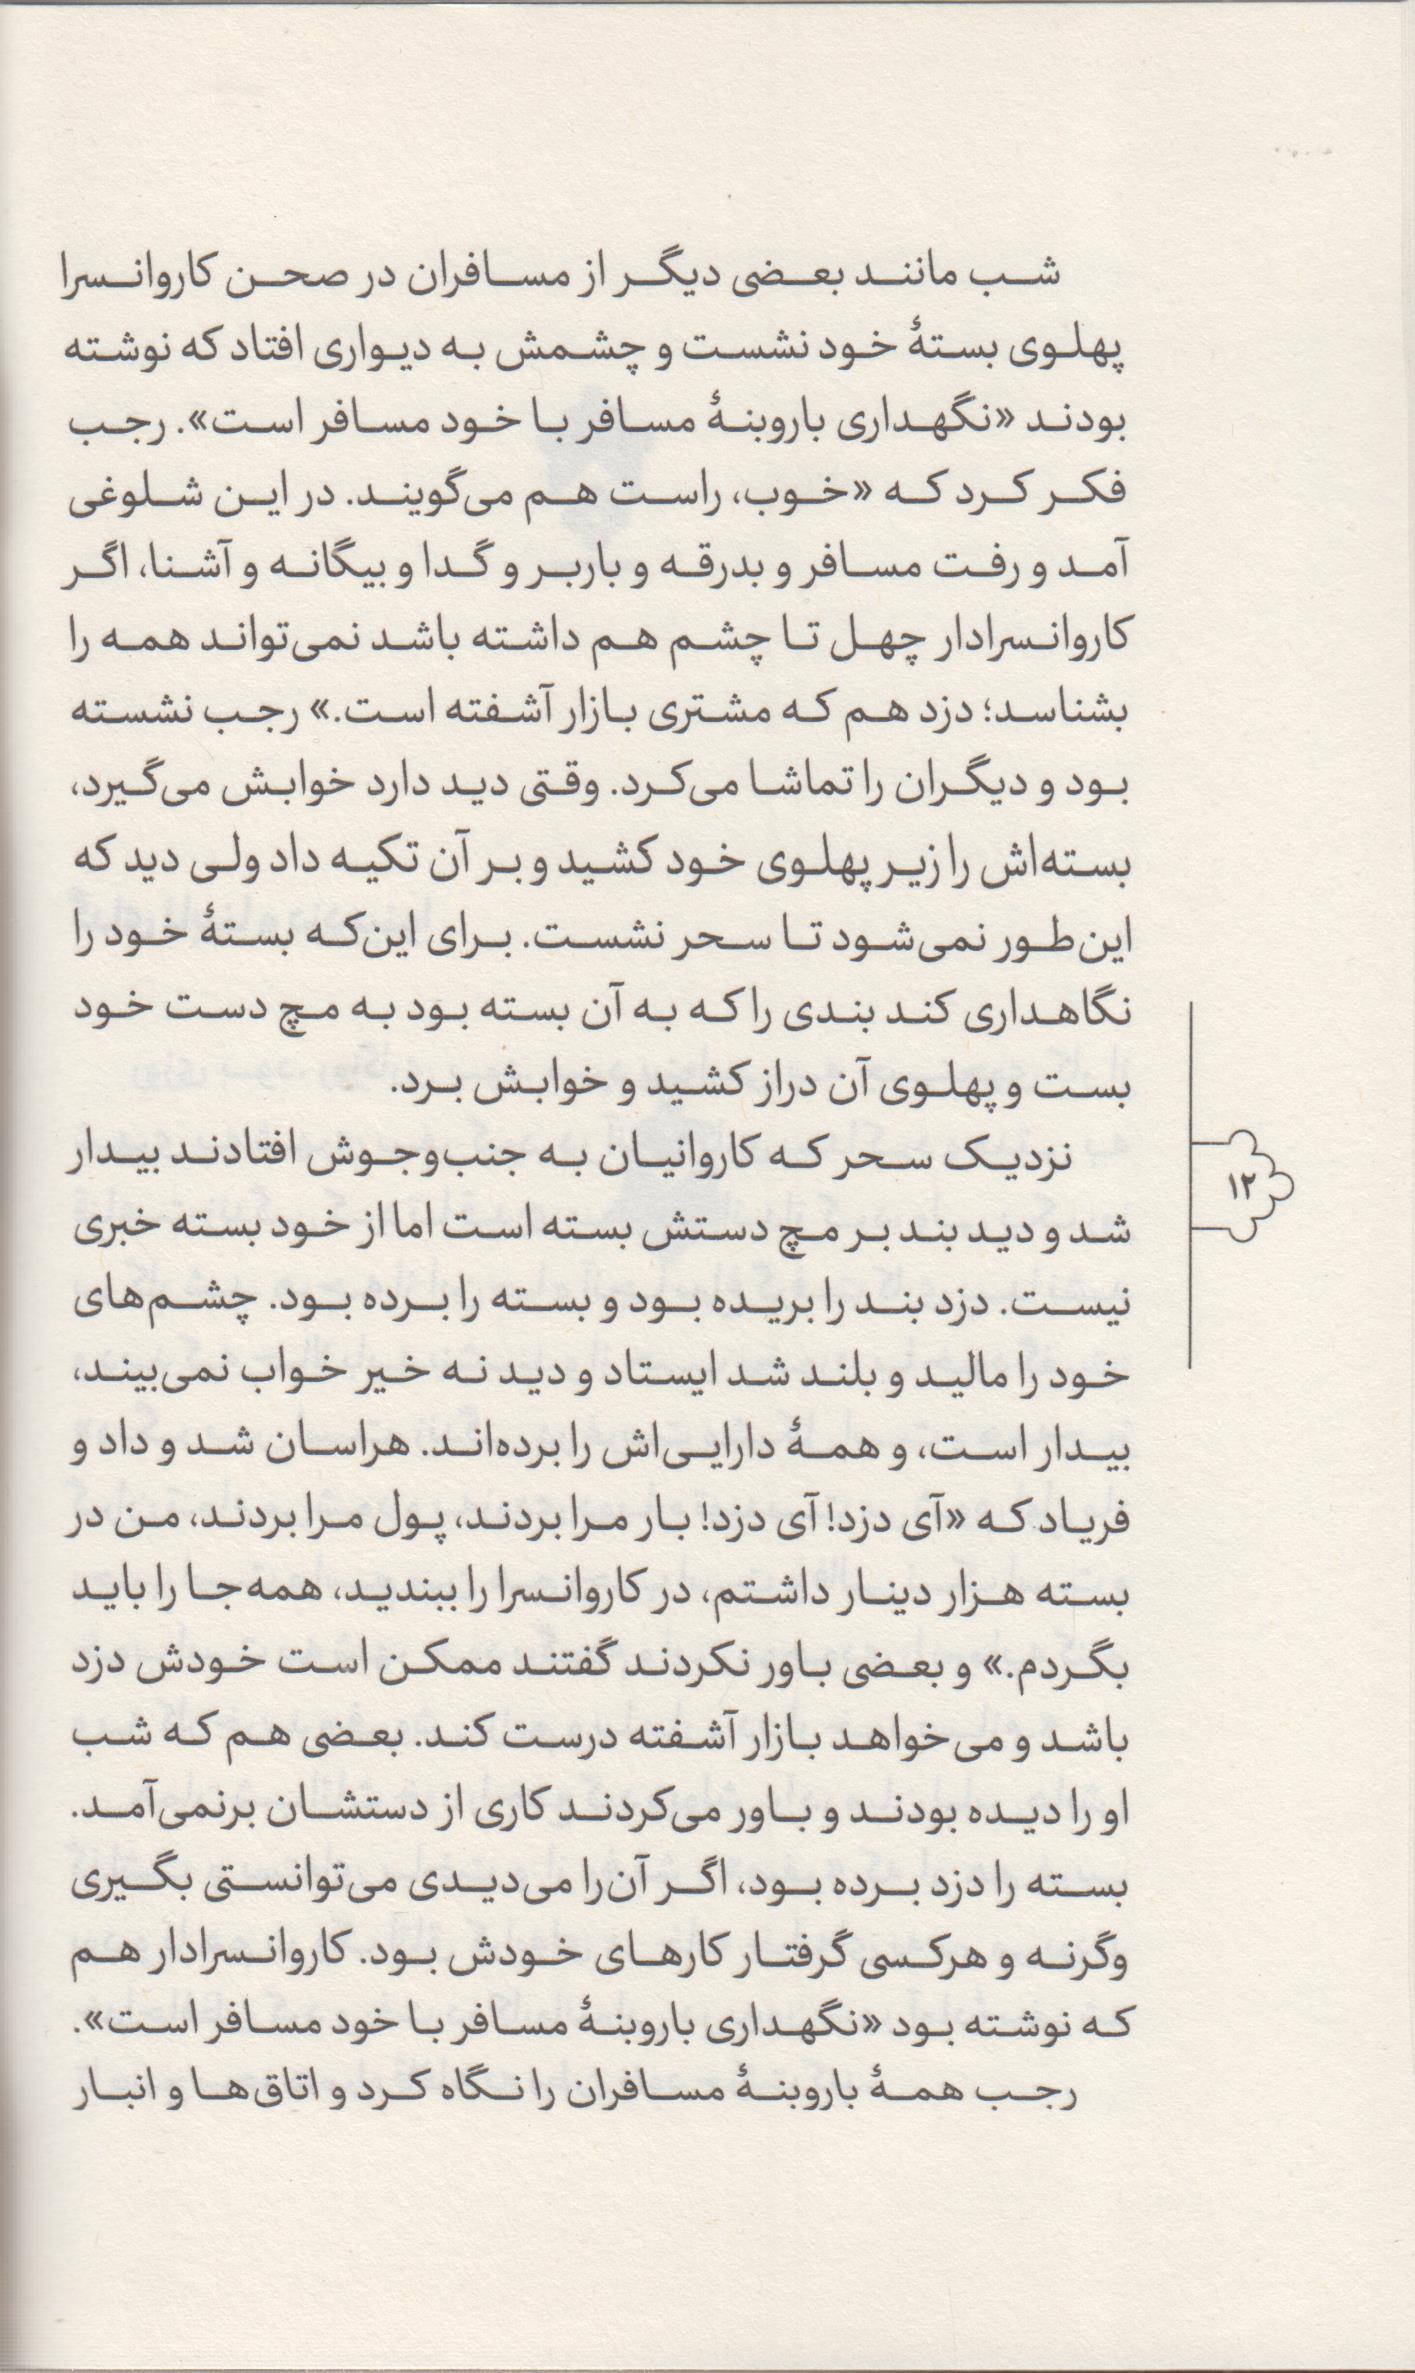 شب مانند بعضی دیگر از مسافران در صحن کاروانسرا
پهلوی بستهٔ خود نشست و چشمش به دیواری افتاد که نوشته
بودند «نگهداری باروبنهٔ مسافر با خود مسافر است». رجب
فکر کرد که «خوب، راست هم می‌گویند. در این شلوغی
آمد و رفت مسافر و بدرقه و باربر و گدا و بیگانه و آشنا، اگر
کاروانسرادار چهل تا چشم هم داشته باشد نمی‌تواند همه را
بشناسد؛ دزد هم که مشتری بازار آشفته است.» رجب نشسته
بود و دیگران را تماشا می‌کرد. وقتی دید دارد خوابش می‌گیرد،
بسته‌اش را زیر پهلوی خود کشید و بر آن تکیه داد ولی دید که
این‌طور نمی‌شود تا سحر نشست. برای این‌که بستهٔ خود را
نگاهداری کند بندی را که به آن بسته بود به مچ دست خود
بست و پهلوی آن دراز کشید و خوابش برد.
نزدیک سحر که کاروانیان به جنب‌وجوش افتادند بیدار
شد و دید بند بر مچ دستش بسته است اما از خود بسته خبری
نیست. دزد بند را بریده بود و بسته را برده بود. چشم‌های
خود را مالید و بلند شد ایستاد و دید نه خیر خواب نمی‌بیند،
بیدار است، و همهٔ دارایی‌اش را برده‌اند. هراسان شد و داد و
فریاد که «آی دزد! آی دزد! بار مرا بردند، پول مرا بردند، من در
بسته هزار دینار داشتم، در کاروانسرا را ببندید، همه‌جا را باید
بگردم.» و بعضی باور نکردند گفتند ممکن است خودش دزد
باشد و می‌خواهد بازار آشفته درست کند. بعضی هم که شب
او را دیده بودند و باور می‌کردند کاری از دستشان برنمی‌آمد.
بسته را دزد برده بود، اگر آن‌را می‌دیدی می‌توانستی بگیری
وگرنه و هرکسی گرفتار کارهای خودش بود. کاروانسرادار هم
که نوشته بود «نگهداری باروبنهٔ مسافر با خود مسافر است».
رجب همهٔ باروبنهٔ مسافران را نگاه کرد و اتاق‌ها و انبار
۱۲